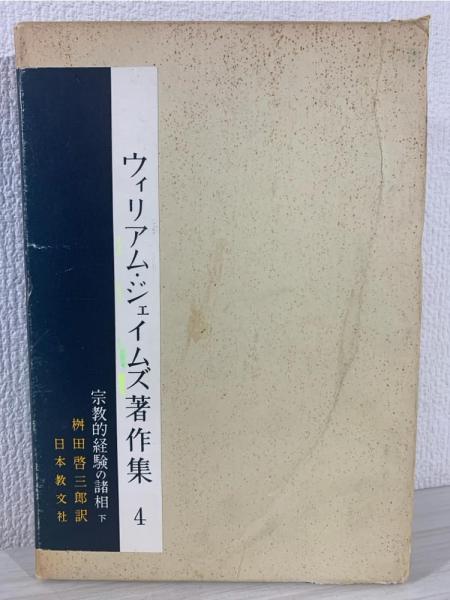 ウィリアム・ジェイムズ著作集 4
宗教的経験の諸相 下
桝田啓三郎訳
日本教文社